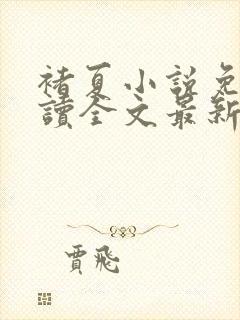 褚夏小說免
讀全文最新
賈飛